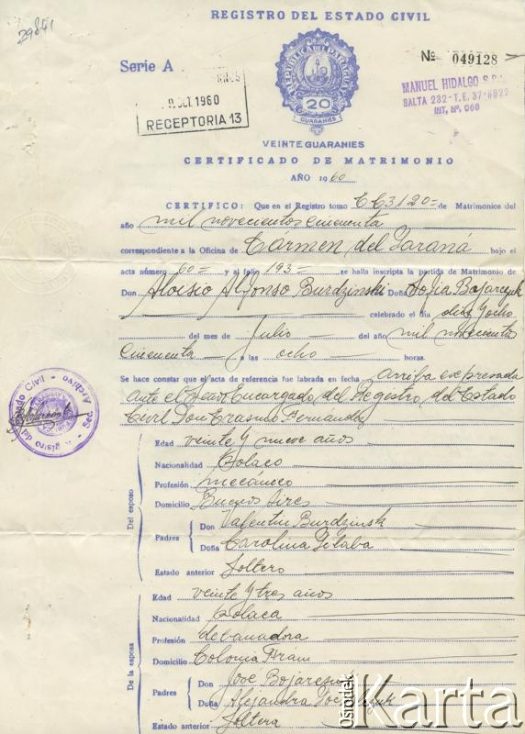 29851
REGISTRO DEL ESTADO CIVIL
Serie A
Nº 049128
REPUBLICA DEL PARAGUAY
20
GUARANIES
OCT. 1960
RECEPTORIA 13
MANUEL HIDALGO S.R.L.
SALTA 232-T.E. 37-8922
INT. Nº 068
VEINTE GUARANIES
CERTIFICADO DE MATRIMONIO
AÑO 1960
CERTIFICO: Que en el Registro tomo 3120= de Matrimonios del
año mil novecientos cincuenta
correspondiente a la Oficina de Cármen del Paraná bajo el
acta número 60= y al folio 193= se halla inscripta la partida de Matrimonio de
Don Aloisio Alfonso Burdzinski Doña Sofia Bojarczuk
celebrado el día diez y ocho
del mes de Julio del año mil novecientos
cincuenta a las ocho horas.
Se hace constar que el acta de referencia fue labrada en fecha arriba expresada
ante el Encargado del Registro del Estado
Civil Don Erasmo Fernandez
Del esposo
Edad veinte y nueve años
Nacionalidad Polaco
Profesión mecánico
Domicilio Buenos Aires
Padres
Don Valentin Burdzinsk
Doña Carolina
Estado anterior soltero
De la esposa
Edad veinte y tres años
Nacionalidad Polaca
Profesión devanadora
Domicilio Colonia Fram
Padres
Don José
Doña Alejandra
Estado anterior soltera
ośrodek Karta